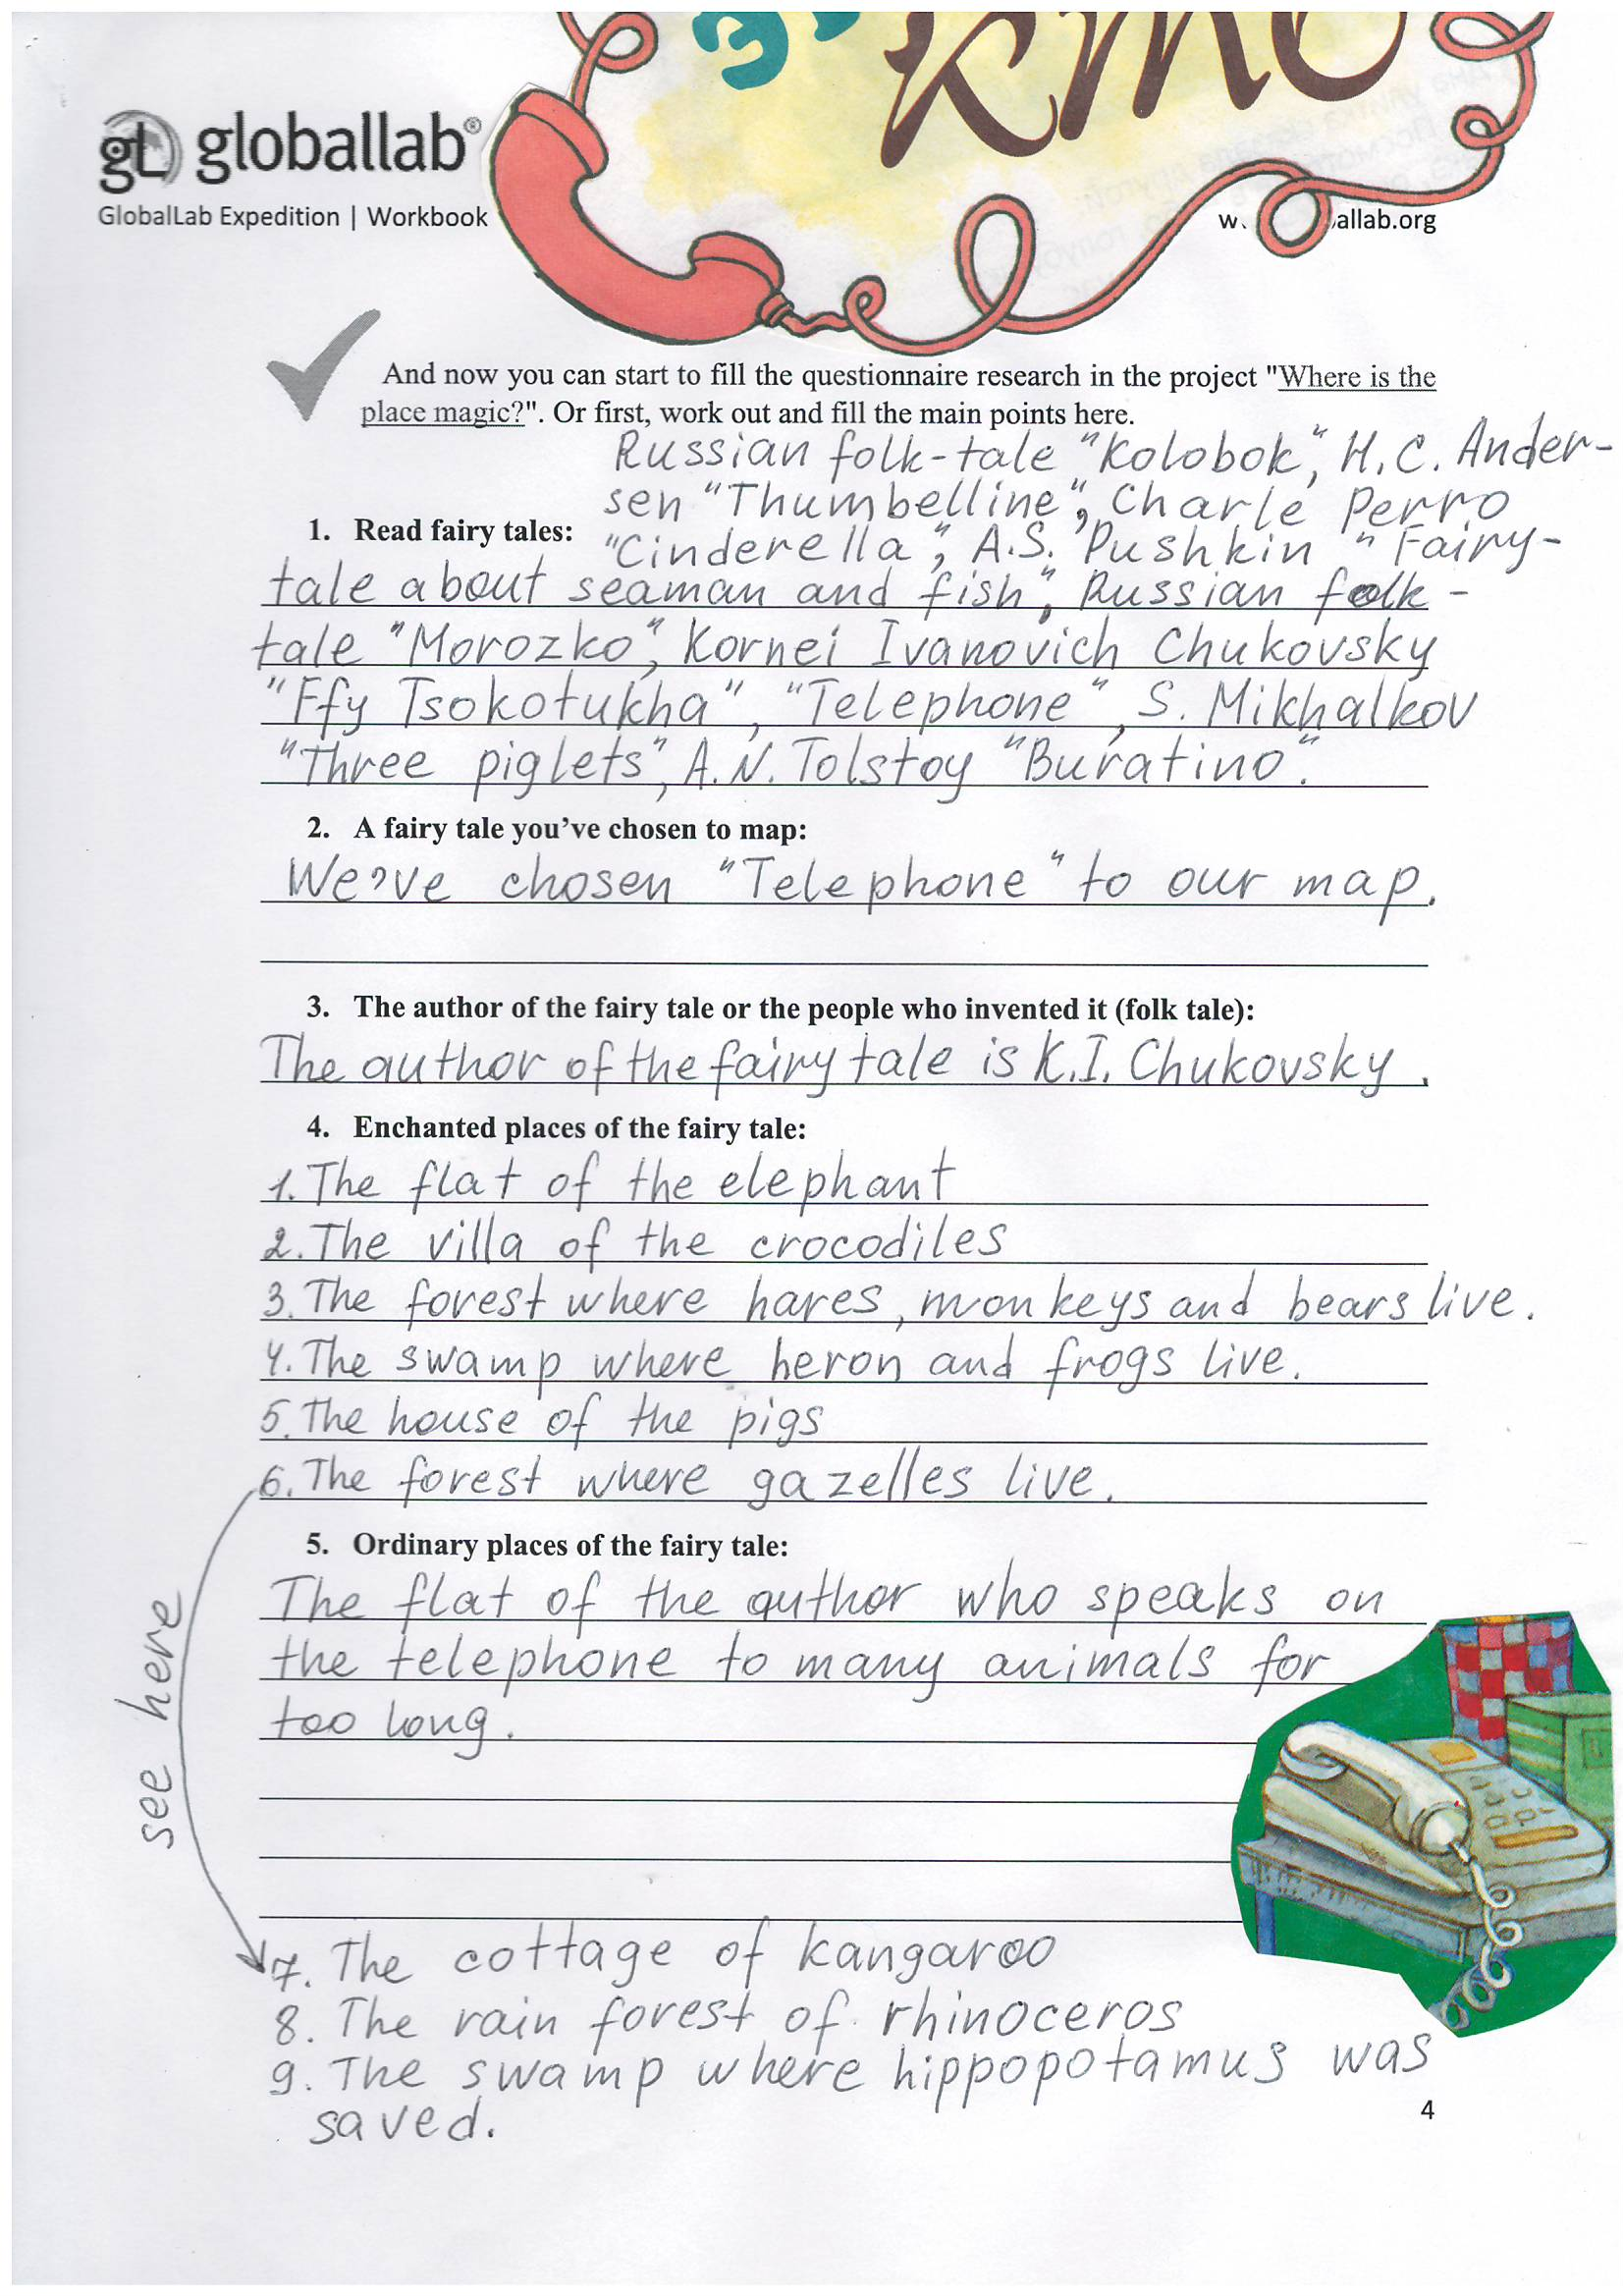 gL globallab®
GlobalLab Expedition | Workbook
w allab.org
And now you can start to fill the questionnaire research in the project "Where is the
place magic?". Or first, work out and fill the main points here.
Russian folk-tale "Kolobok", H.C. Ander-
sen "Thumbelline", Charle Perro
1. Read fairy tales: "Cinderella", A.S. Pushkin "Fairy-
tale about seaman and fish", Russian folk-
tale "Morozko", Kornei Ivanovich Chukovsky
"Ffy Tsokotukha", "Telephone", S. Mikhalkov
"Three piglets", A.N. Tolstoy "Buratino".
2. A fairy tale you've chosen to map:
We've chosen "Telephone" to our map.
3. The author of the fairy tale or the people who invented it (folk tale):
The author of the fairy tale is K.I. Chukovsky.
4. Enchanted places of the fairy tale:
1. The flat of the elephant
2. The villa of the crocodiles
3. The forest where hares, monkeys and bears live.
4. The swamp where heron and frogs live.
5. The house of the pigs
6. The forest where gazelles live.
5. Ordinary places of the fairy tale:
The flat of the author who speaks on
the telephone to many animals for
too long.
see here
7. The cottage of kangaroo
8. The rain forest of rhinoceros
9. The swamp where hippopotamus was
saved.
4